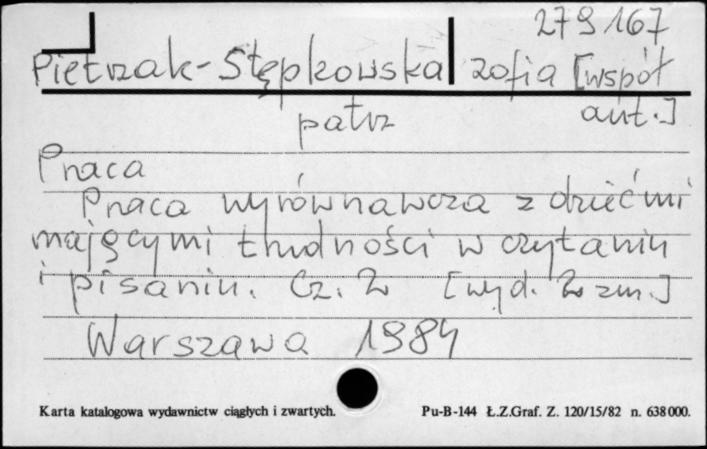 279167
Pietrzak-Stępkowska Zofia [współ
aut.]
patrz
Praca
Praca wyrównawcza z dziećmi
mającymi trudności w czytaniu
i pisaniu. Cz. 2 [wyd. 2 zm.]
Warszawa 1984
Karta katalogowa wydawnictw ciągłych i zwartych. Pu-B-144 Ł.Z.Graf. Z. 120/15/82 n. 638000.